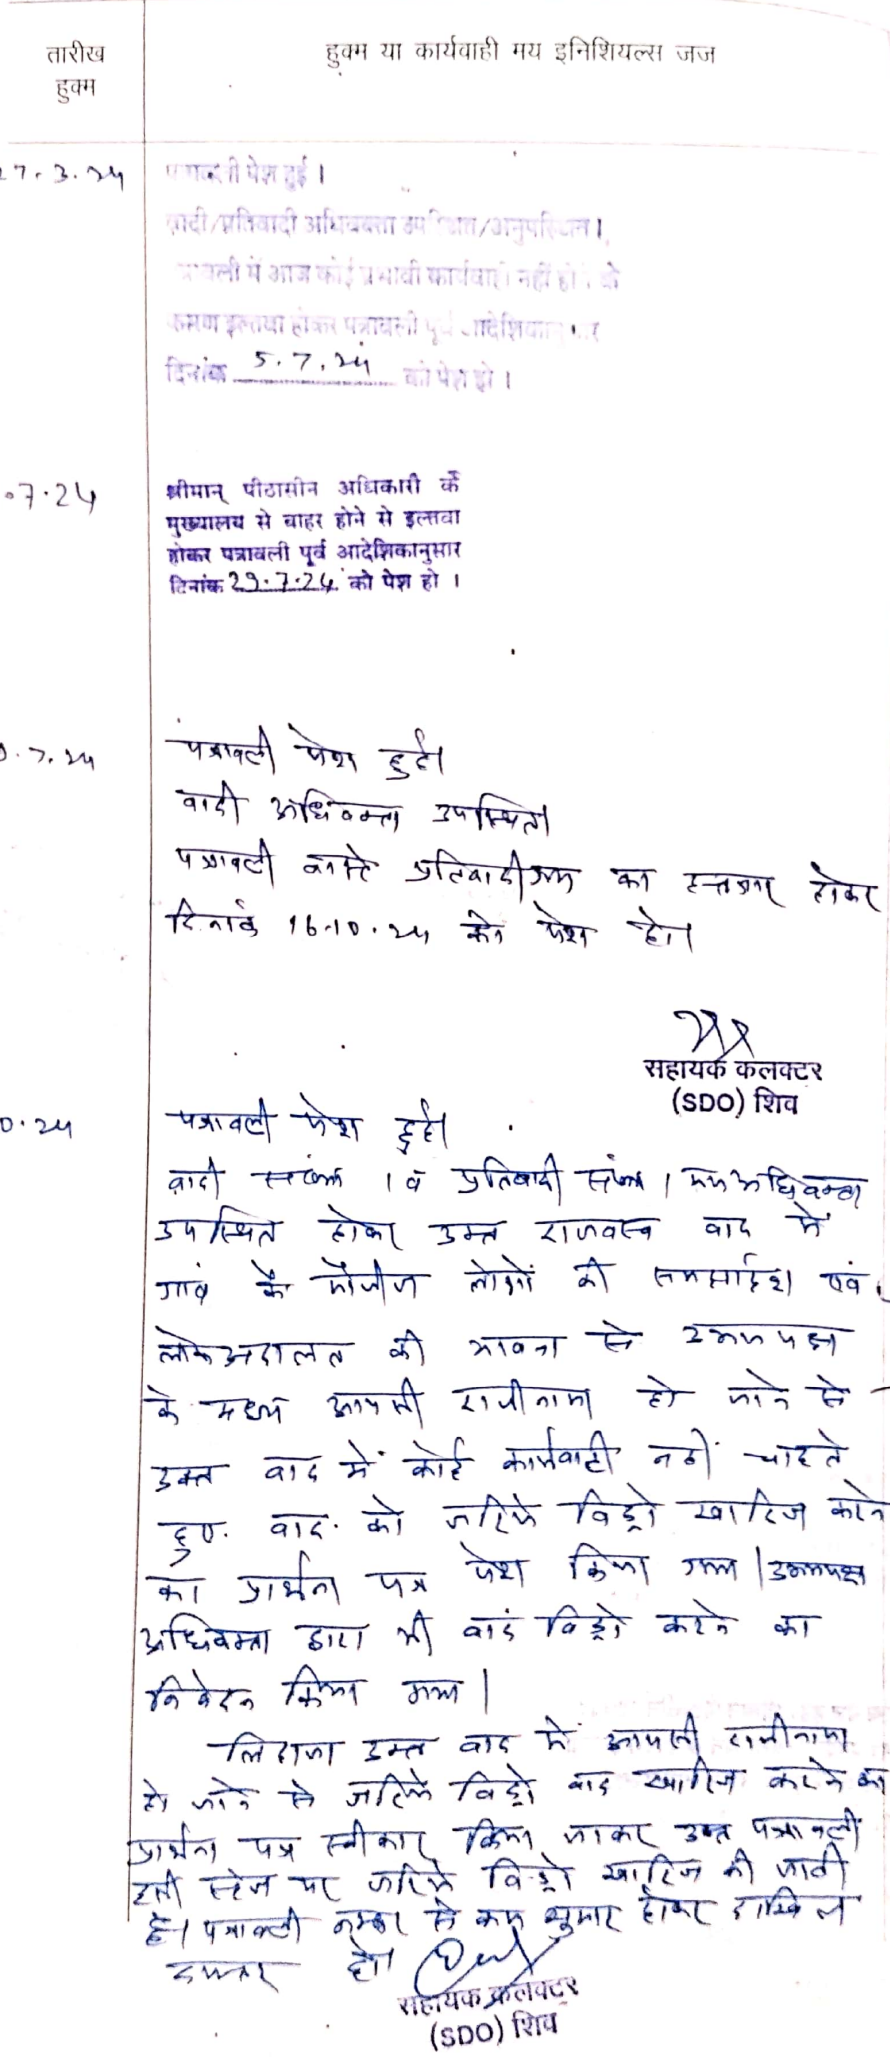 तारीख
हुक्म
हुक्म या कार्यवाही मय इनिशियल्स जज
27.3.24
पत्रावली पेश हुई ।
वादी/प्रतिवादी अधिवक्ता उपस्थित/अनुपस्थित ।
पत्रावली में आज कोई प्रभावी कार्यवाही नहीं हो
इल्तवा होकर पत्रावली पूर्व
दिनांक 5.7.24 को पेश हो ।
07.24
श्रीमान् पीठासीन अधिकारी के
मुख्यालय से बाहर होने से इल्तवा
होकर पत्रावली पूर्व आदेशिकानुसार
दिनांक 29.7.24 को पेश हो ।
.7.24
पत्रावली पेश हुई।
वादी अधिवक्ता उपस्थित।
पत्रावली वास्ते प्रतिवादीगण का इन्तजार होकर
दिनांक 16.10.24 को पेश हो।
सहायक कलक्टर
(SDO) शिव
0.24
पत्रावली पेश हुई।
वादी संख्या 1 व प्रतिवादी संख्या 1 मय अधिवक्ता
उपस्थित होकर उक्त राजस्व वाद में
गावं के मौजीज लोगों की समझाईश एवं
लोक अदालत की भावना से उभयपक्ष
के मध्य आपसी राजीनामा हो जाने से
उक्त वाद में कोई कार्यवाही नहीं चाहते
हुए वाद को जरिये विड्रो खारिज करने
का प्रार्थना पत्र पेश किया गया । उभयपक्ष
अधिवक्ता द्वारा भी वाद विड्रो करने का
निवेदन किया गया ।
लिहाजा उक्त वाद में आपसी राजीनामा
हो जाने से जरिये विड्रो वाद खारिज करने का
प्रार्थना पत्र स्वीकार किया जाकर उक्त पत्रावली
इसी स्टेज पर जरिये विड्रो खारिज की जाती
है। पत्रावली नम्बर से कम शुमार होकर दाखिल
दफ्तर हो।
सहायक कलक्टर
(SDO) शिव